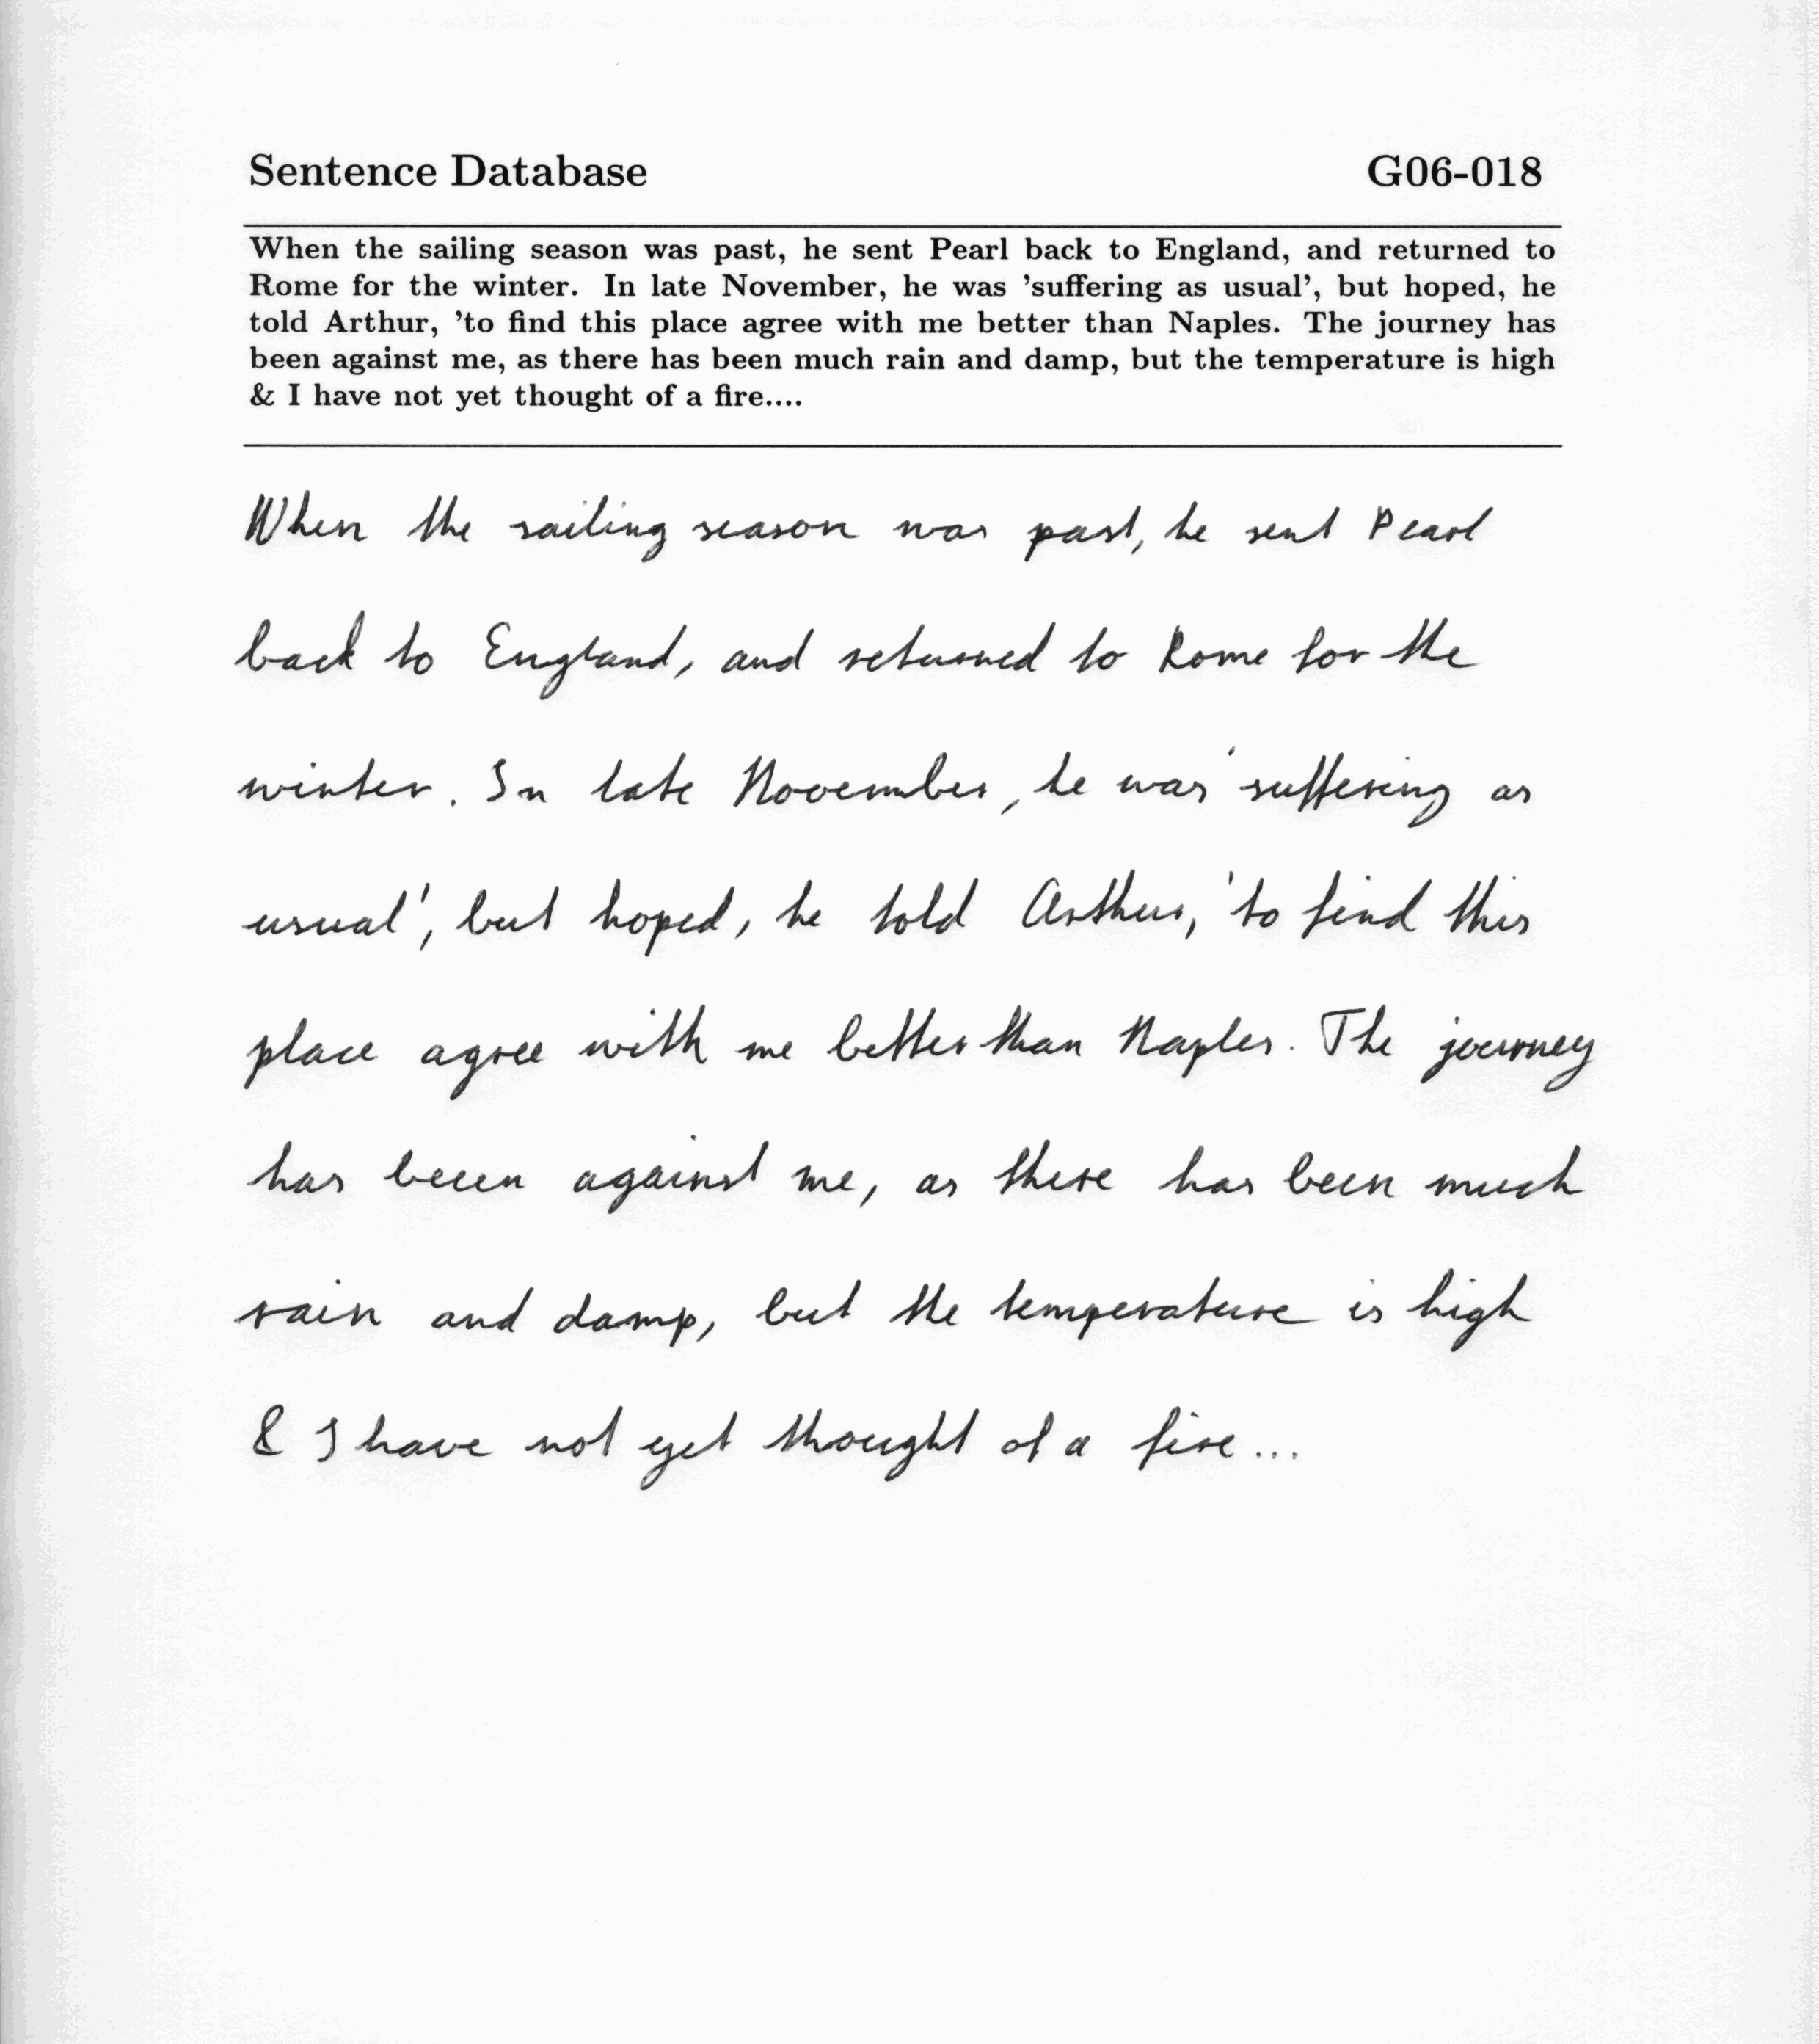 Sentence Database G06-018
When the sailing season was past, he sent Pearl back to England, and returned to
Rome for the winter. In late November, he was 'suffering as usual', but hoped, he
told Arthur, 'to find this place agree with me better than Naples. The journey has
been against me, as there has been much rain and damp, but the temperature is high
& I have not yet thought of a fire....
When the sailing season was past, he sent Pearl
back to England, and returned to Rome for the
winter. In late November, he was 'suffering as
usual', but hoped, he told Arthur, 'to find this
place agree with me better than Naples. The journey
has beeen against me, as there has been much
rain and damp, but the temperature is high
& I have not yet thought of a fire...